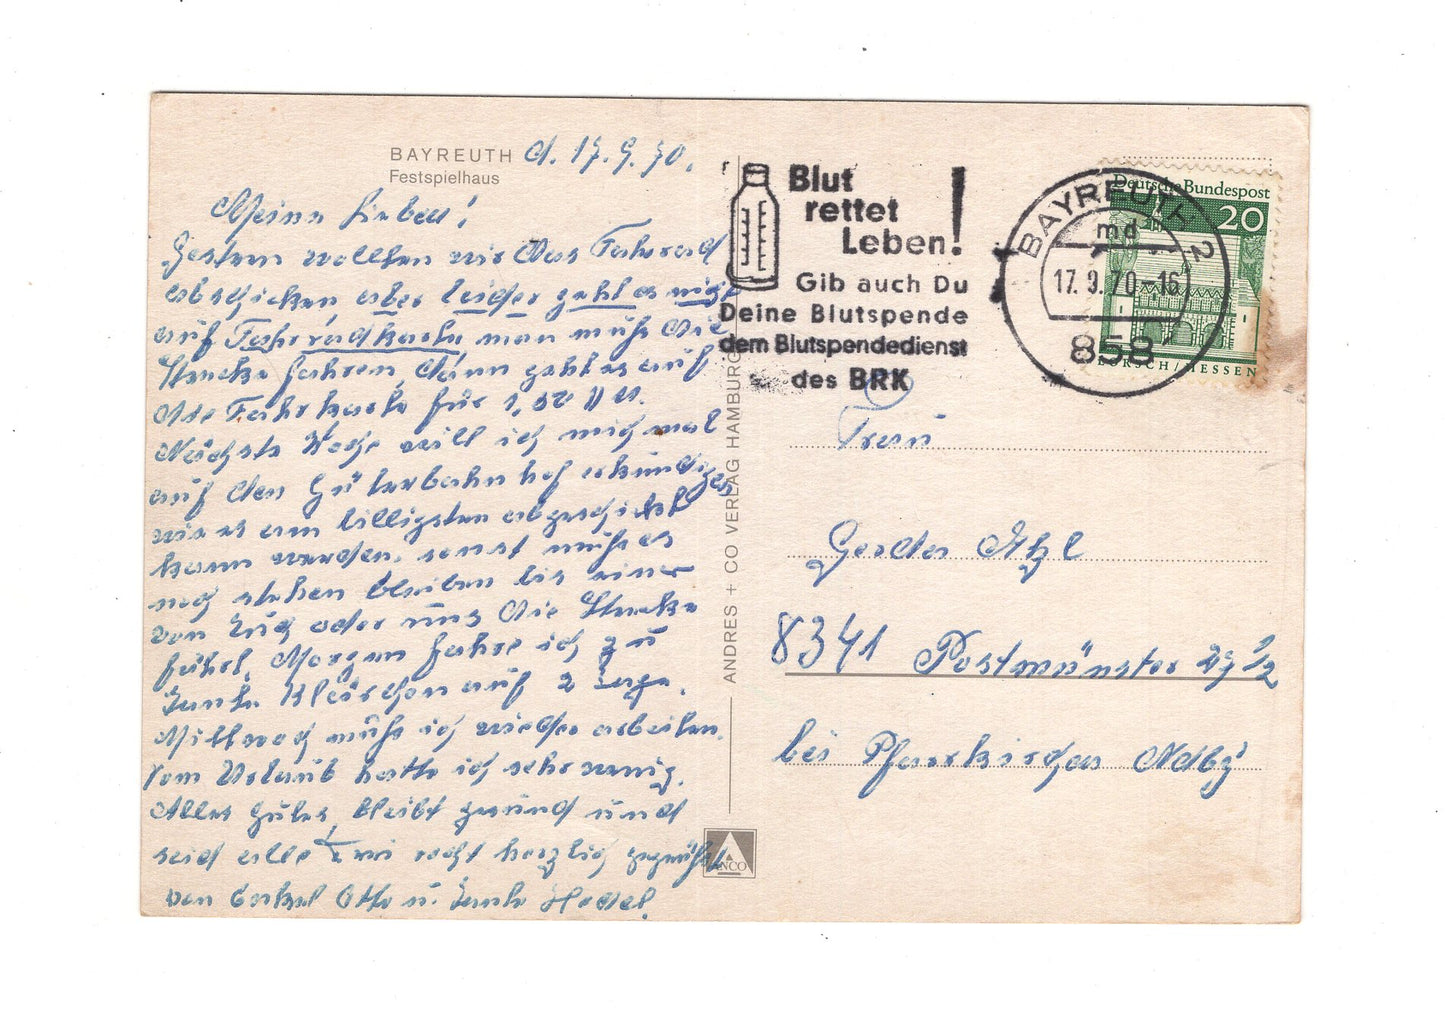 BAYREUTH
Festspielhaus
d. 17.9.70.
Meine Lieben!
Gestern wollten wir das Fahrrad
abschicken aber leider geht es nicht
auf Fahrradkarte man muß die
Strecke fahren, dann geht es auf
die Fahrkarte für 1,50 DM.
Nächste Woche will ich mich mal
auf den Güterbahnhof erkundigen
wie es am billigsten abgeschickt
kann werden, sonst muß es
noch stehen bleiben bis einer
von Euch oder uns die Strecke
fährt. Morgen fahre ich zu
Tante Klärchen auf 2 Tage.
Mittwoch muß ich wieder arbeiten.
Vom Urlaub hatte ich sehr wenig.
Alles Gute, bleibt gesund und
seid alle recht herzlich gegrüßt
von Onkel Otto u. Tante
ANDRES + CO VERLAG HAMBURG
ANCO
Blut
rettet
Leben!
Gib auch Du
Deine Blutspende
dem Blutspendedienst
des BRK
BAYREUTH 2
md
17.9.70-16
858
Deutsche Bundespost
20
LORSCH/HESSEN
Frau
Gerda
8341 Postmünster 29 1/2
bei Pfarrkirchen Ndby